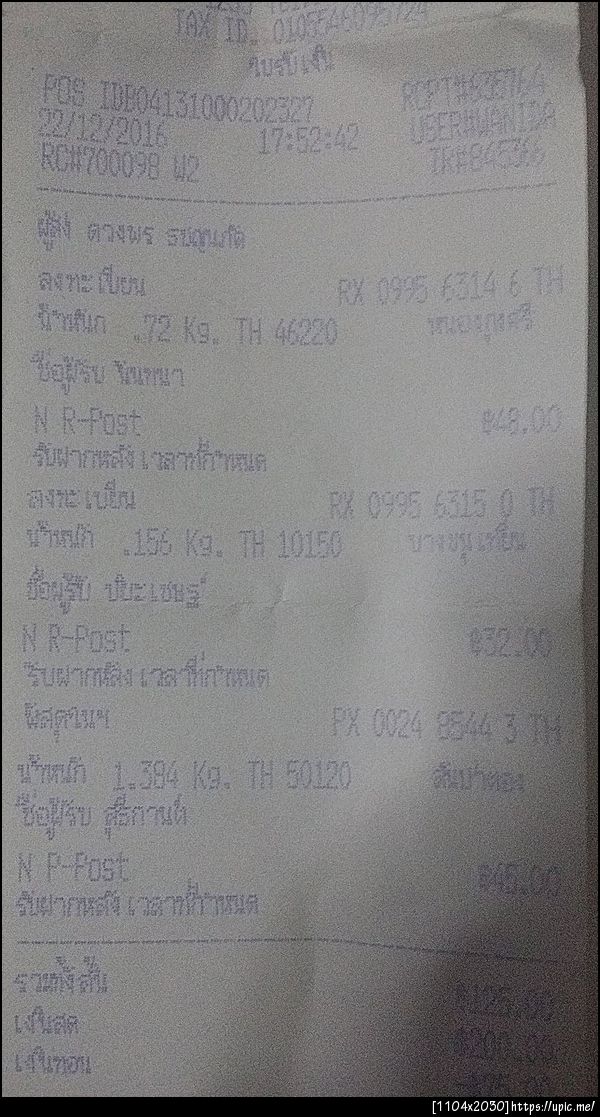 TAX ID. 0105546095724
ใบรับเงิน
POS IDB04131000202327 RCPT#835764
22/12/2016 17:52:42 USER#WANIDA
RC#700098 W2 TR#845366
ผู้ส่ง ดวงพร
ลงทะเบียน RX 0995 6314 6 TH
น้ำหนัก .72 Kg. TH 46220 หนองกุงศรี
ชื่อผู้รับ นันทนา
N R-Post ฿48.00
รับฝากหลังเวลาที่กำหนด
ลงทะเบียน RX 0995 6315 0 TH
น้ำหนัก .156 Kg. TH 10150 บางขุนเทียน
ชื่อผู้รับ ปิยะเชษฐ์
N R-Post ฿32.00
รับฝากหลังเวลาที่กำหนด
พัสดุในฯ PX 0024 8544 3 TH
น้ำหนัก 1.384 Kg. TH 50120 สันป่าตอง
ชื่อผู้รับ สุธีกานต์
N P-Post ฿45.00
รับฝากหลังเวลาที่กำหนด
รวมทั้งสิ้น ฿125.00
เงินสด ฿200.00
เงินทอน
[1104x2030]https://upic.me/